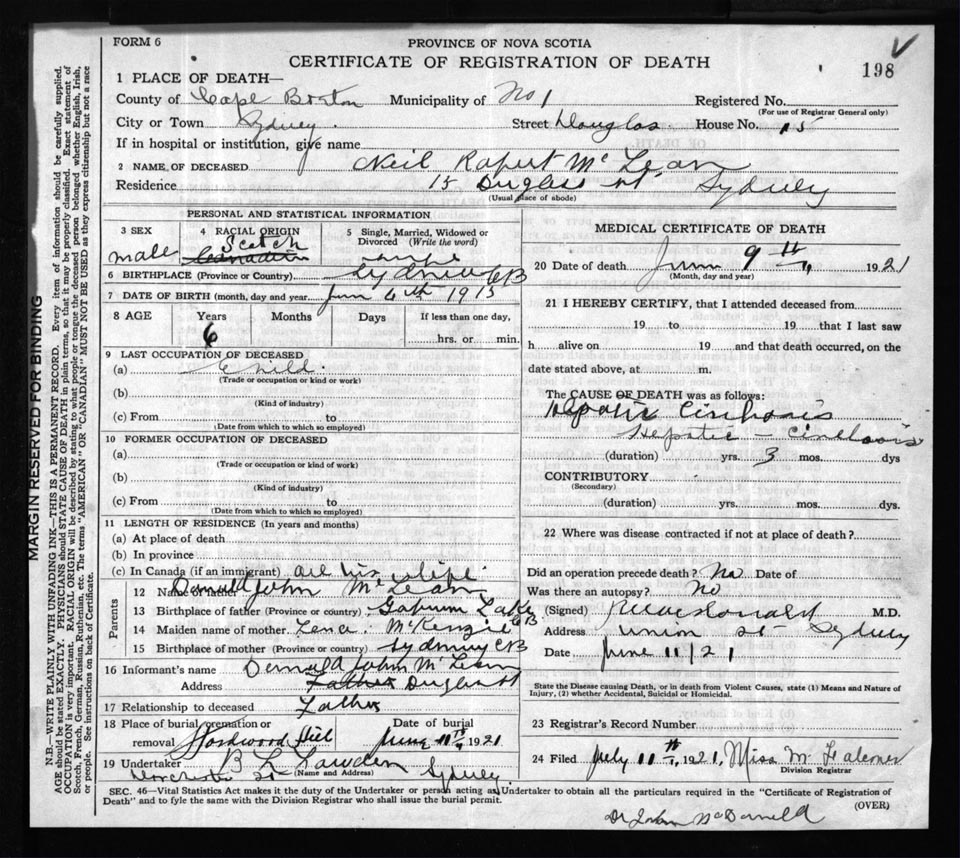 FORM 6
PROVINCE OF NOVA SCOTIA
CERTIFICATE OF REGISTRATION OF DEATH
198
1 PLACE OF DEATH—
County of Cape Breton Municipality of No 1 Registered No.
(For use of Registrar General only)
City or Town Sydney. Street Douglas. House No. 15
If in hospital or institution, give name
2 NAME OF DECEASED Neil Rupert Mc Lean
Residence 15 Duglass st Sydney
(Usual place of abode)
PERSONAL AND STATISTICAL INFORMATION
3 SEX 4 RACIAL ORIGIN 5 Single, Married, Widowed or Divorced (Write the word)
male Scotch Canadian
6 BIRTHPLACE (Province or Country) Sydney CB
7 DATE OF BIRTH (month, day and year) June 4th 1915
8 AGE Years Months Days If less than one day,
6 hrs. or min.
9 LAST OCCUPATION OF DECEASED
(a) Child.
(Trade or occupation or kind or work)
(b)
(Kind of industry)
(c) From to
(Date from which to which so employed)
10 FORMER OCCUPATION OF DECEASED
(a)
(Trade or occupation or kind of work)
(b)
(Kind of industry)
(c) From to
(Date from which to which so employed)
11 LENGTH OF RESIDENCE (In years and months)
(a) At place of death
(b) In province
(c) In Canada (if an immigrant) all his life
Parents
12 Name of father John McLean
13 Birthplace of father (Province or country) Lake CB
14 Maiden name of mother Lena. McKenzie
15 Birthplace of mother (Province or country) Sydney CB
16 Informant's name John McLean
Address Father Duglas st
17 Relationship to deceased Father
18 Place of burial, cremation or removal Hardwood Hill Date of burial June 11th, 1921
19 Undertaker B L
(Name and Address)
Dorchester St Sydney.
MEDICAL CERTIFICATE OF DEATH
20 Date of death June 9th, 1921
(Month, day and year)
21 I HEREBY CERTIFY, that I attended deceased from
19 to 19 that I last saw
h alive on 19 and that death occurred, on the
date stated above, at m.
The CAUSE OF DEATH was as follows:
Hepatic Cirrhosis
Hepatic - Cirrhosis
(duration) yrs. 3 mos. dys
CONTRIBUTORY
(Secondary)
(duration) yrs. mos. dys.
22 Where was disease contracted if not at place of death?
Did an operation precede death? No Date of
Was there an autopsy? No
(Signed) MacDonald M.D.
Address Union St- Sydney
Date June 11/21
State the Disease causing Death, or in death from Violent Causes, state (1) Means and Nature of Injury, (2) whether Accidental, Suicidal or Homicidal.
23 Registrar's Record Number
24 Filed July 11th, 1921, Miss M Falconer
Division Registrar
SEC. 46—Vital Statistics Act makes it the duty of the Undertaker or person acting as Undertaker to obtain all the particulars required in the "Certificate of Registration of
Death" and to fyle the same with the Division Registrar who shall issue the burial permit.
(OVER)
Dr John McDonald
MARGIN RESERVED FOR BINDING
N.B.—WRITE PLAINLY WITH UNFADING INK—THIS IS A PERMANENT RECORD. Every item of information should be carefully supplied.
AGE should be stated EXACTLY. PHYSICIANS should STATE CAUSE OF DEATH in plain terms, so that it may be properly classified. Exact statement of
OCCUPATION is very important. RACIAL ORIGIN will be described by stating to what people or tongue the deceased person belonged whether English, Irish,
Scotch, French, German, Russian, Ruthenian, etc. The terms "AMERICAN" OR "CANADIAN" MUST NOT BE USED as they express citizenship but not a race
or people. See instructions on back of Certificate.